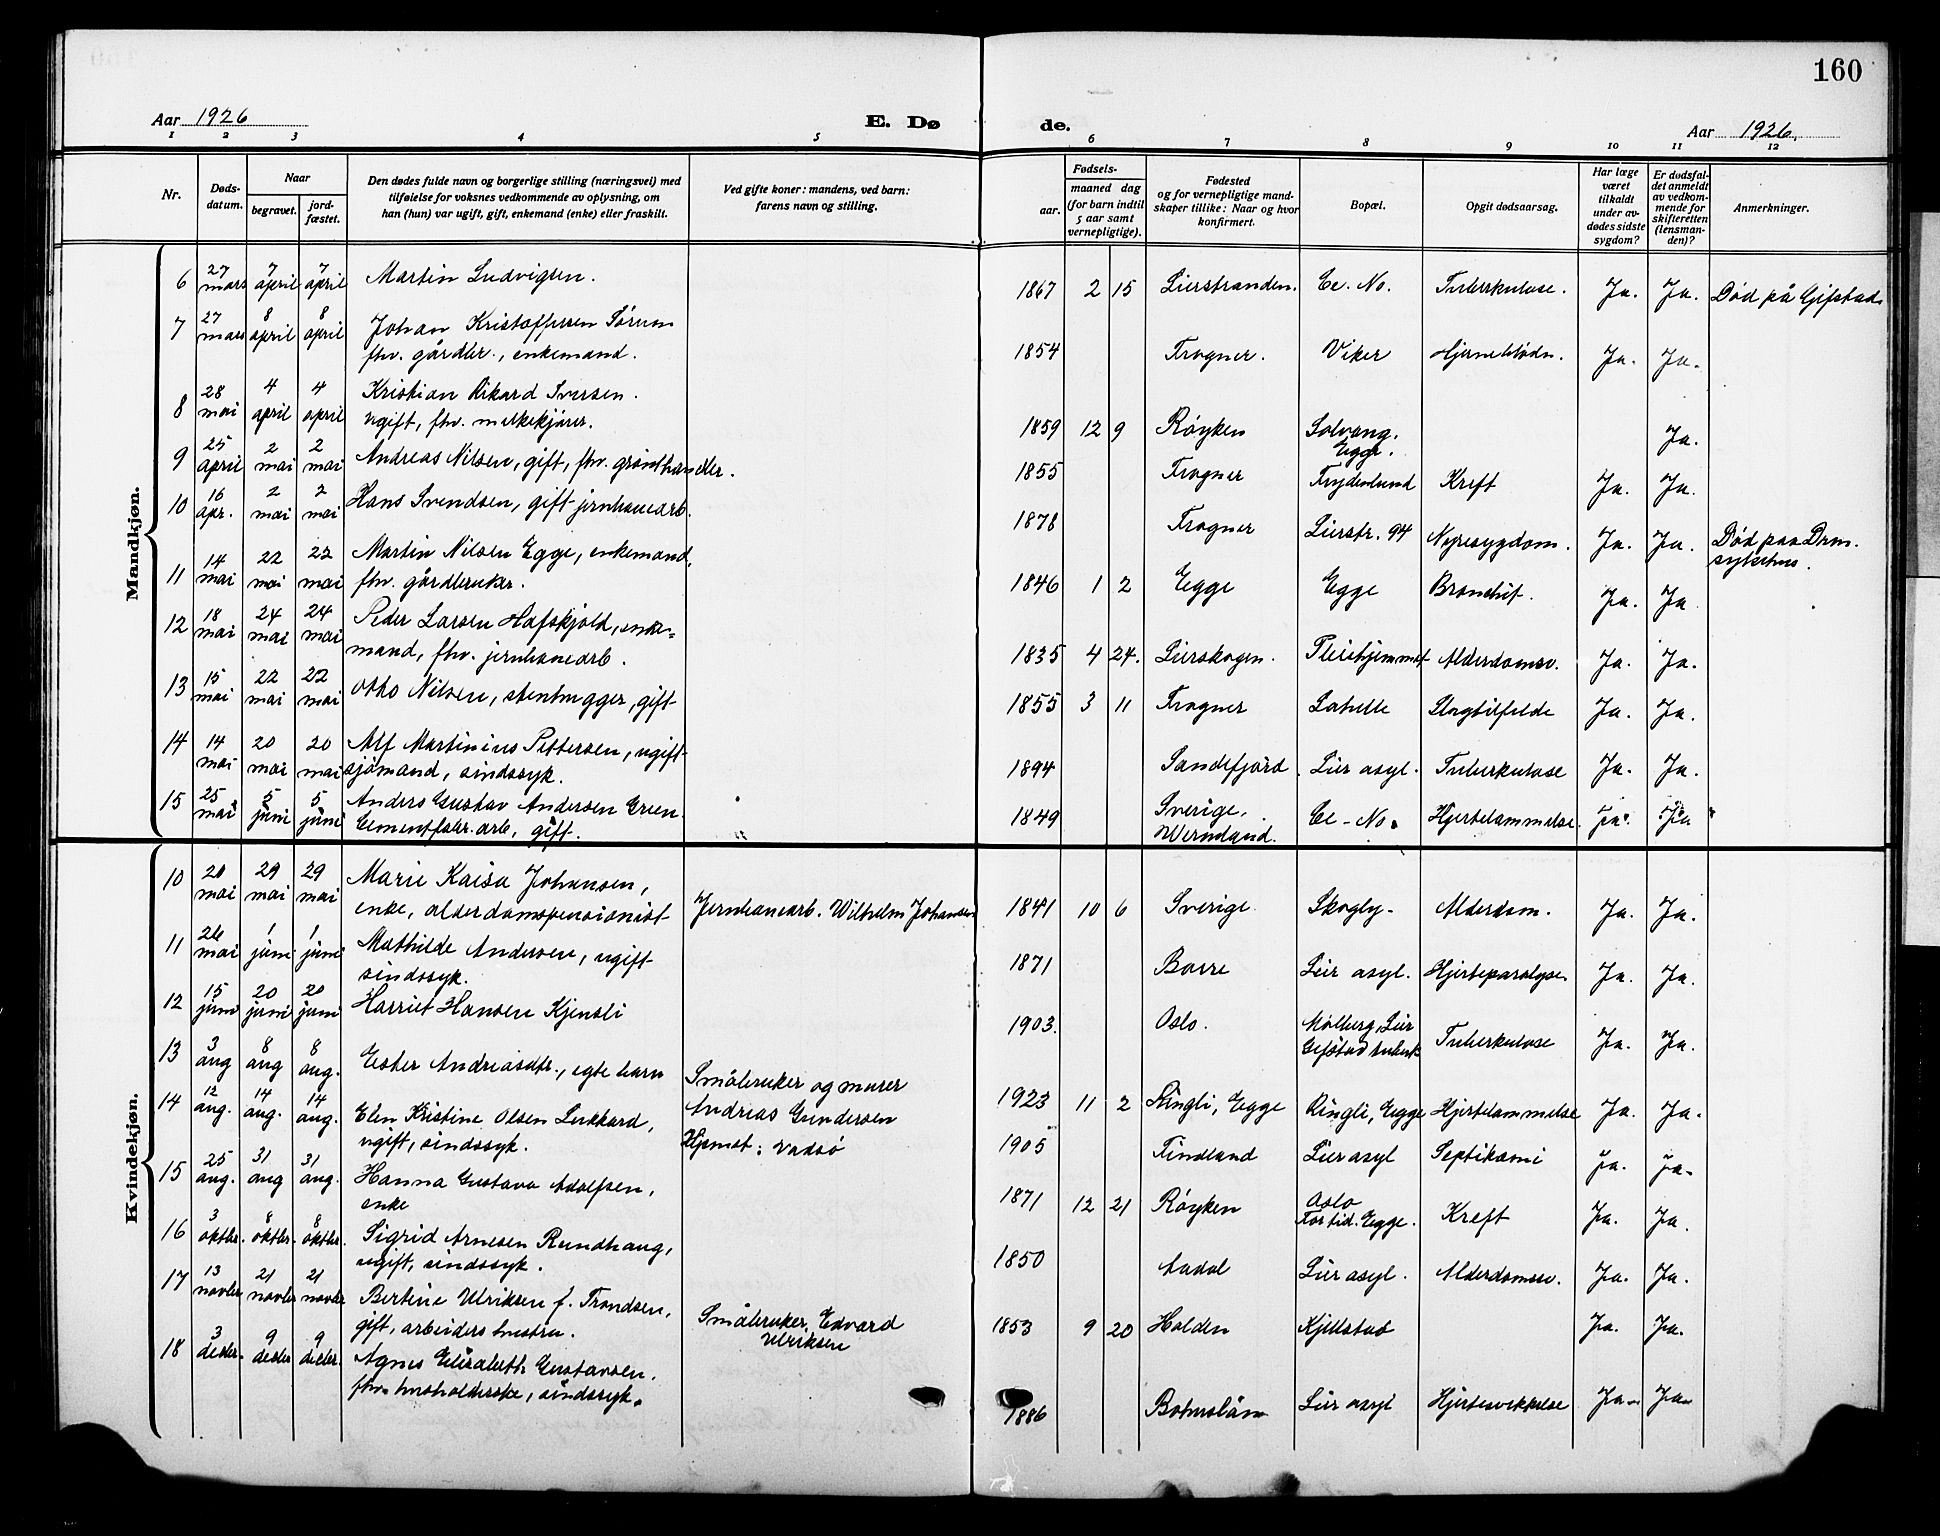 160
Aar 1926
E. Dø
de.
Aar 1926.
1 2 3 4 5 6 7 8 9 10 11 12
Nr.
Døds-
datum.
Naar
begravet.
jord-
fæstet.
Den dødes fulde navn og borgerlige stilling (næringsvei) med
tilføielse for voksnes vedkommende av oplysning, om
han (hun) var ugift, gift, enkemand (enke) eller fraskilt.
Ved gifte koner: mandens, ved barn:
farens navn og stilling.
Fødsels-
aar.
maaned dag
(for barn indtil
5 aar samt
vernepligtige).
Fødested
og for vernepligtige mand-
skaper tillike: Naar og hvor
konfirmert.
Bopæl.
Opgit dødsaarsag.
Har læge
været
tilkaldt
under av-
dødes sidste
sygdom?
Er dødsfal-
det anmeldt
av vedkom-
mende for
skifteretten
(lensman-
den)?
Anmerkninger.
Mandkjøn.
6 27 mars 7 april 7 april Martin Ludvigsen. 1867 2 15 Lierstranden. Ce. No. Tuberkulose. Ja. Ja. Død på Gifstad
7 27 mars 8 april 8 april Johan Kristoffersen Sørum
fhv. gårdbr., enkemand. 1854 Frogner. Viker Hjerneblødn. Ja. Ja.
8 28 mai 4 april 4 april Kristian Rikard Iversen.
ugift, fhv. melkekjører. 1859 12 9 Røyken Solvang, Egge. Ja.
9 25 april 2 mai 2 mai Andreas Nilsen, gift, fhv. grønthandler. 1855 Frogner Frydenlund Kreft Ja. Ja.
10 16 apr. 2 mai 2 mai Hans Svendsen, gift jernbanearb. 1878 Frogner Lierstr. 94 Nyresygdom. Ja. Ja. Død paa Drm. sykehus.
11 14 mai 22 mai 22 mai Martin Nilsen Egge, enkemand,
fhv. gårdbruker. 1846 1 2 Egge Egge Bronchit. Ja. Ja
12 18 mai 24 mai 24 mai Peder Larsen Hafskjold, enke-
mand, fhv. jernbanearb. 1835 4 24. Lierskogen. Pleiehjemmet Alderdomsv. Ja. Ja.
13 15 mai 22 mai 22 mai Otto Nilsen, stenhugger, gift 1855 3 11 Frogner Labelle Slagtilfelde Ja. Ja.
14 14 mai 20 mai 20 mai Alf Martinius Pettersen, ugift
sjømand, sindssyk. 1894 Sandefjord Lier asyl. Tuberkulose Ja. Ja.
15 25 mai 5 juni 5 juni Anders Gustav Andersen Green
Cementfabr. arb, gift. 1849 Sverige, Wermland. Ce-No. Hjertelammelse. Ja. Ja
Kvindekjøn.
10 20 mai 29 mai 29 mai Marie Kaisa Johansen,
enke, alderdomspensionist Jernbanearb. Wilhelm Johansen 1841 10 6 Sverige Skogly- Alderdom. Ja. Ja.
11 26 mai 1 juni 1 juni Mathilde Andersen, ugift
sindssyk. 1871 Borre Lier asyl. Hjerteparalyse Ja. Ja.
12 15 juni 20 juni 20 juni Harriet Hansen Kjensli 1903. Oslo. Mølberg, Lier
Gifstad tuberk Tuberkulose Ja. Ja.
13 3 aug 8 aug 8 aug. Ester Andreasdtr., egte barn Småbruker og murer
Andreas Gundersen 1923 11 2 Ringli, Egge Ringli, Egge Hjertelammelse Ja. Ja.
14 12 aug. 14 aug. 14 aug. Elen Kristine Olsen Lukkard,
ugift, sindssyk. Hjemst: Vadsø 1905 Findland Lier asyl Septikæmi Ja. Ja.
15 25 aug. 31 aug 31 aug. Hanna Gustava Adolfsen,
enke 1871 12 21 Røyken Oslo
For tid. Egge. Kreft Ja. Ja.
16 3 oktbr. 8 oktbr. 8 oktbr. Sigrid Arnesen Rundhaug,
ugift, sindssyk. 1850 Aadal Lier asyl. Alderdomssv. Ja. Ja.
17 13 novbr 21 novbr 21 novbr Bertine Ulriksen f. Trondsen,
gift, arbeiders hustru. Småbruker, Edvard
Ulriksen 1853 9 20 Holden Kjellstad Ja. Ja.
18 3 desbr. 9 desbr 9 desbr. Agnes Elisabeth Gustavsen.
fhv. husholderske, sindssyk. 1886 Bohuslän Lier asyl Hjertesvekkelse Ja. Ja